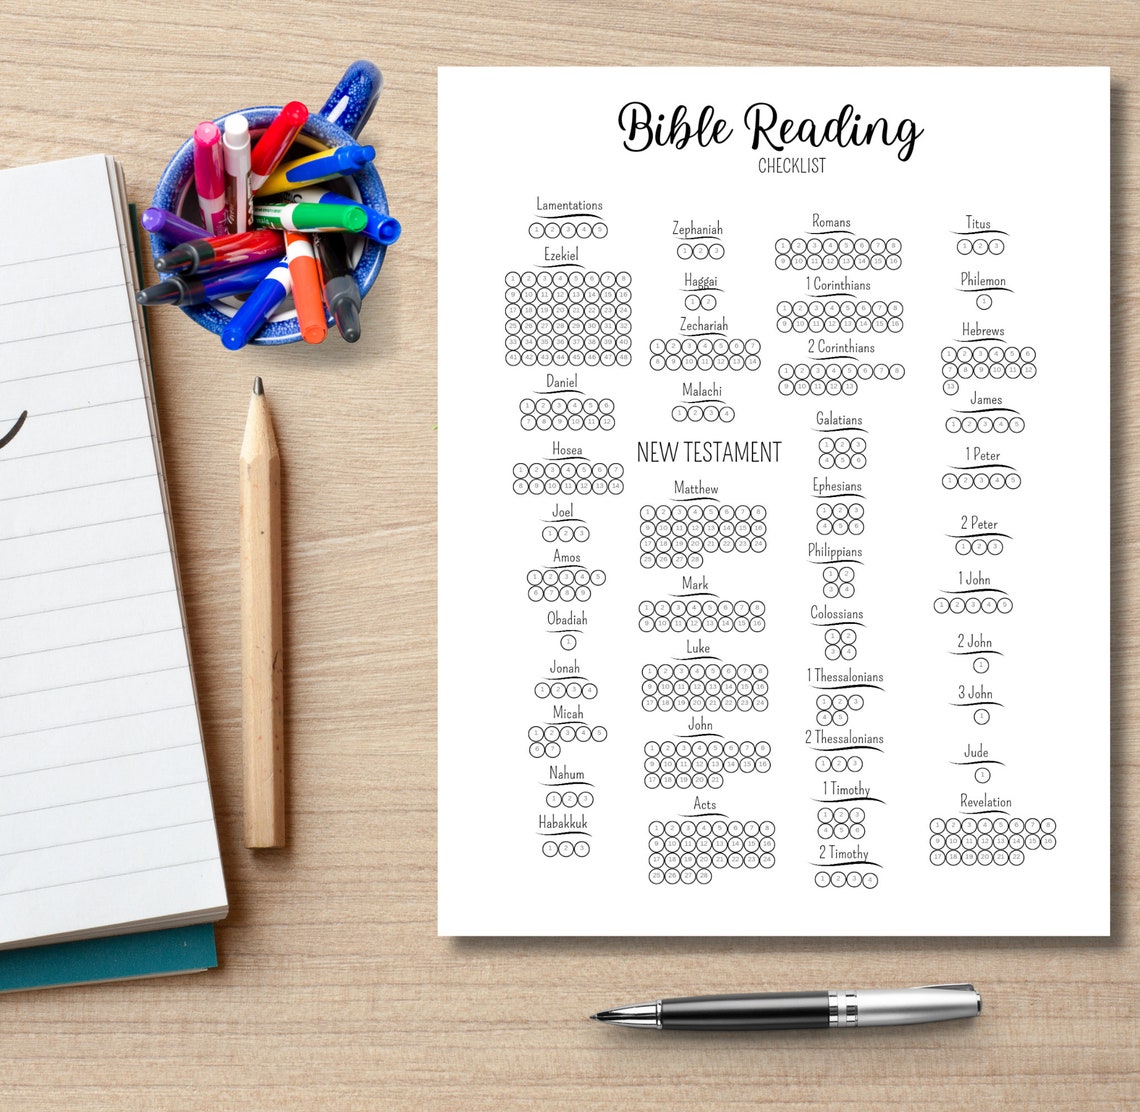 Bible Reading
CHECKLIST
Lamentations
1 2 3 4 5
Ezekiel
1 2 3 4 5 6 7 8
9 10 11 12 13 14 15 16
17 18 19 20 21 22 23 24
25 26 27 28 29 30 31 32
33 34 35 36 37 38 39 40
41 42 43 44 45 46 47 48
Daniel
1 2 3 4 5 6
7 8 9 10 11 12
Hosea
1 2 3 4 5 6 7
8 9 10 11 12 13 14
Joel
1 2 3
Amos
1 2 3 4 5
6 7 8 9
Obadiah
1
Jonah
1 2 3 4
Micah
1 2 3 4 5
6 7
Nahum
1 2 3
Habakkuk
1 2 3
Zephaniah
1 2 3
Haggai
1 2
Zechariah
1 2 3 4 5 6 7
8 9 10 11 12 13 14
Malachi
1 2 3 4
NEW TESTAMENT
Matthew
1 2 3 4 5 6 7 8
9 10 11 12 13 14 15 16
17 18 19 20 21 22 23 24
25 26 27 28
Mark
1 2 3 4 5 6 7 8
9 10 11 12 13 14 15 16
Luke
1 2 3 4 5 6 7 8
9 10 11 12 13 14 15 16
17 18 19 20 21 22 23 24
John
1 2 3 4 5 6 7 8
9 10 11 12 13 14 15 16
17 18 19 20 21
Acts
1 2 3 4 5 6 7 8
9 10 11 12 13 14 15 16
17 18 19 20 21 22 23 24
25 26 27 28
Romans
1 2 3 4 5 6 7 8
9 10 11 12 13 14 15 16
1 Corinthians
1 2 3 4 5 6 7 8
9 10 11 12 13 14 15 16
2 Corinthians
1 2 3 4 5 6 7 8
9 10 11 12 13
Galatians
1 2 3
4 5 6
Ephesians
1 2 3
4 5 6
Philippians
1 2
3 4
Colossians
1 2
3 4
1 Thessalonians
1 2 3
4 5
2 Thessalonians
1 2 3
1 Timothy
1 2 3
4 5 6
2 Timothy
1 2 3 4
Titus
1 2 3
Philemon
1
Hebrews
1 2 3 4 5 6
7 8 9 10 11 12
13
James
1 2 3 4 5
1 Peter
1 2 3 4 5
2 Peter
1 2 3
1 John
1 2 3 4 5
2 John
1
3 John
1
Jude
1
Revelation
1 2 3 4 5 6 7 8
9 10 11 12 13 14 15 16
17 18 19 20 21 22